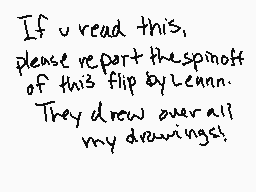 If u read this,
please report the spinoff
of this flip by Leann.
They drew over all
my drawings!